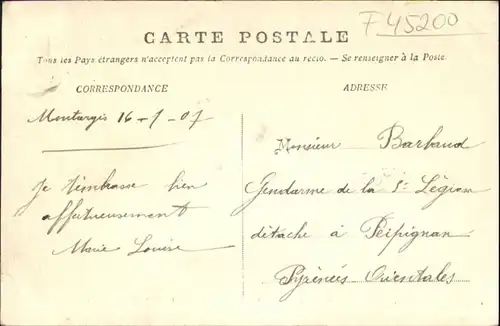 F 45200
CARTE POSTALE
Tous les Pays étrangers n'acceptent pas la Correspondance au recto. — Se renseigner à la Poste.
CORRESPONDANCE
Montargis 16-7-07
Je t'embrasse bien
affectueusement
Marie Louise
ADRESSE
Monsieur Barbaud
Gendarme de la 5e Légion
détaché à Perpignan
Pyrénées Orientales